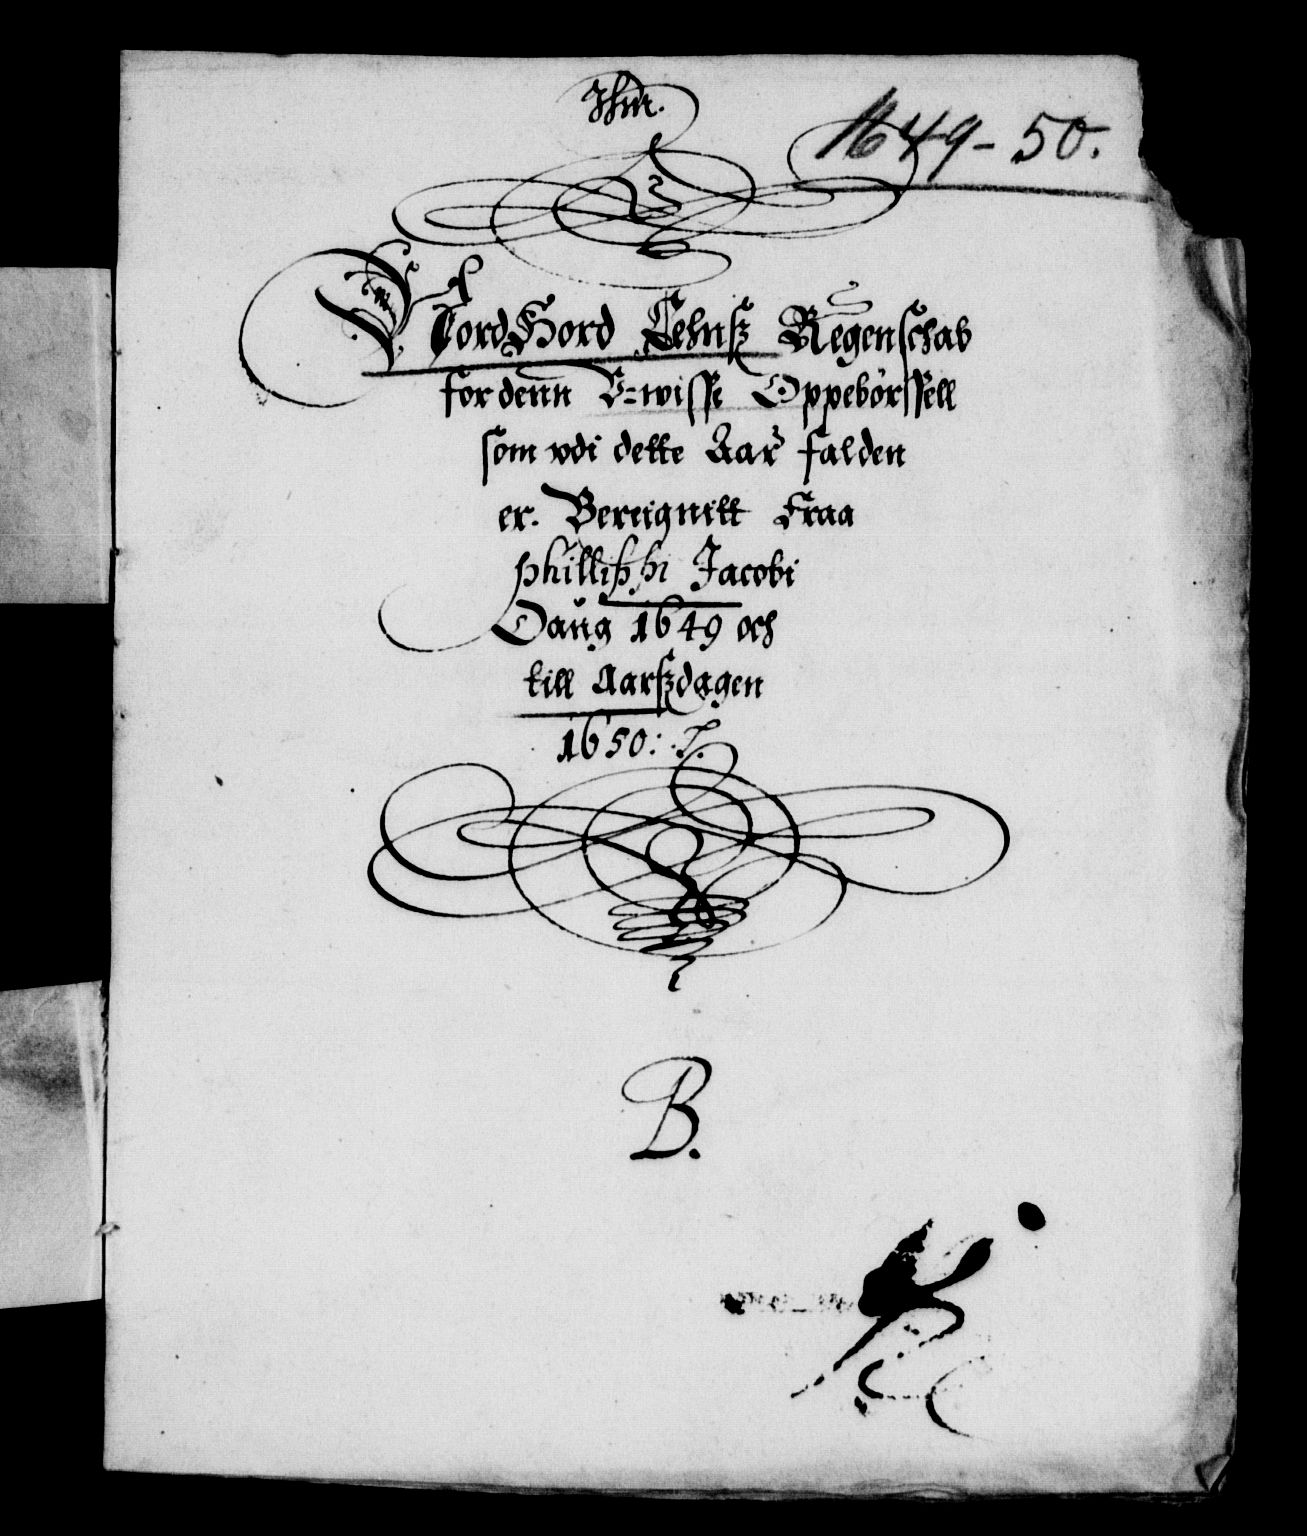 Ihm.
1649-50.
Fiord Hord Lehnsz Regenschab
for denn U=wisse Oppebörssell
som vdi dette Aar falden
er. Bereignitt fraa
Phillippi Jacobi
Daug 1649 och
till Aarszdagen
1650:
B.